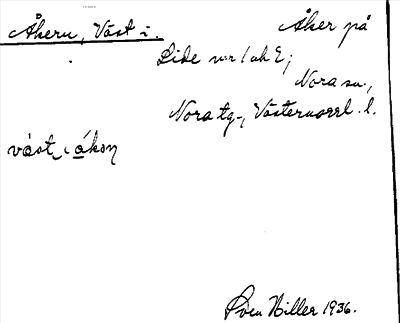 Åkern, Väst i.
Åker på
Lide nr 1 och 2;
Nora sn.,
Nora tg., Västernorrl. l.
väst i åkɐn
Sven Hiller 1936.